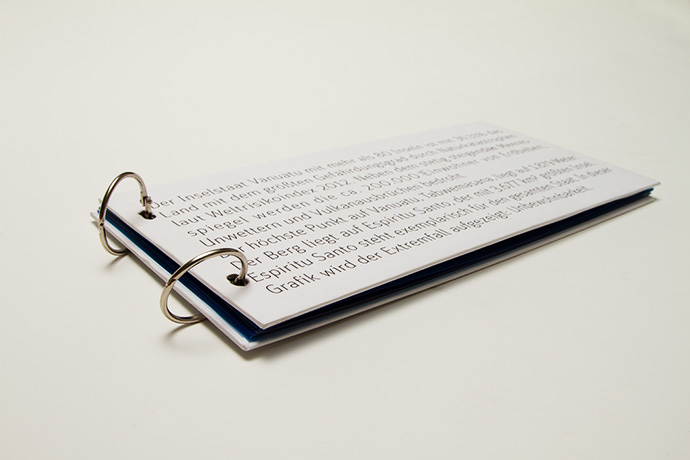 Der Inselstaat Vanuatu mit mehr als 80 Inseln ist mit das
Land mit dem größten Gefährdungsgrad durch Naturkatastrophen
laut Weltrisikoindex 2012. Neben dem stetig steigenden Meeres-
spiegel werden die ca. 200.000 Einwohner von Erdbeben,
Unwettern und Vulkanausbrüchen bedroht.
Der höchste Punkt auf Vanuatu, Tabwemasana, liegt auf 1.879 Meter.
Der Berg liegt auf Espiritu Santo, der mit 3.677 km² größten Insel.
Espiritu Santo steht exemplarisch für den gesamten Staat. In dieser
Grafik wird der Extremfall aufgezeigt: